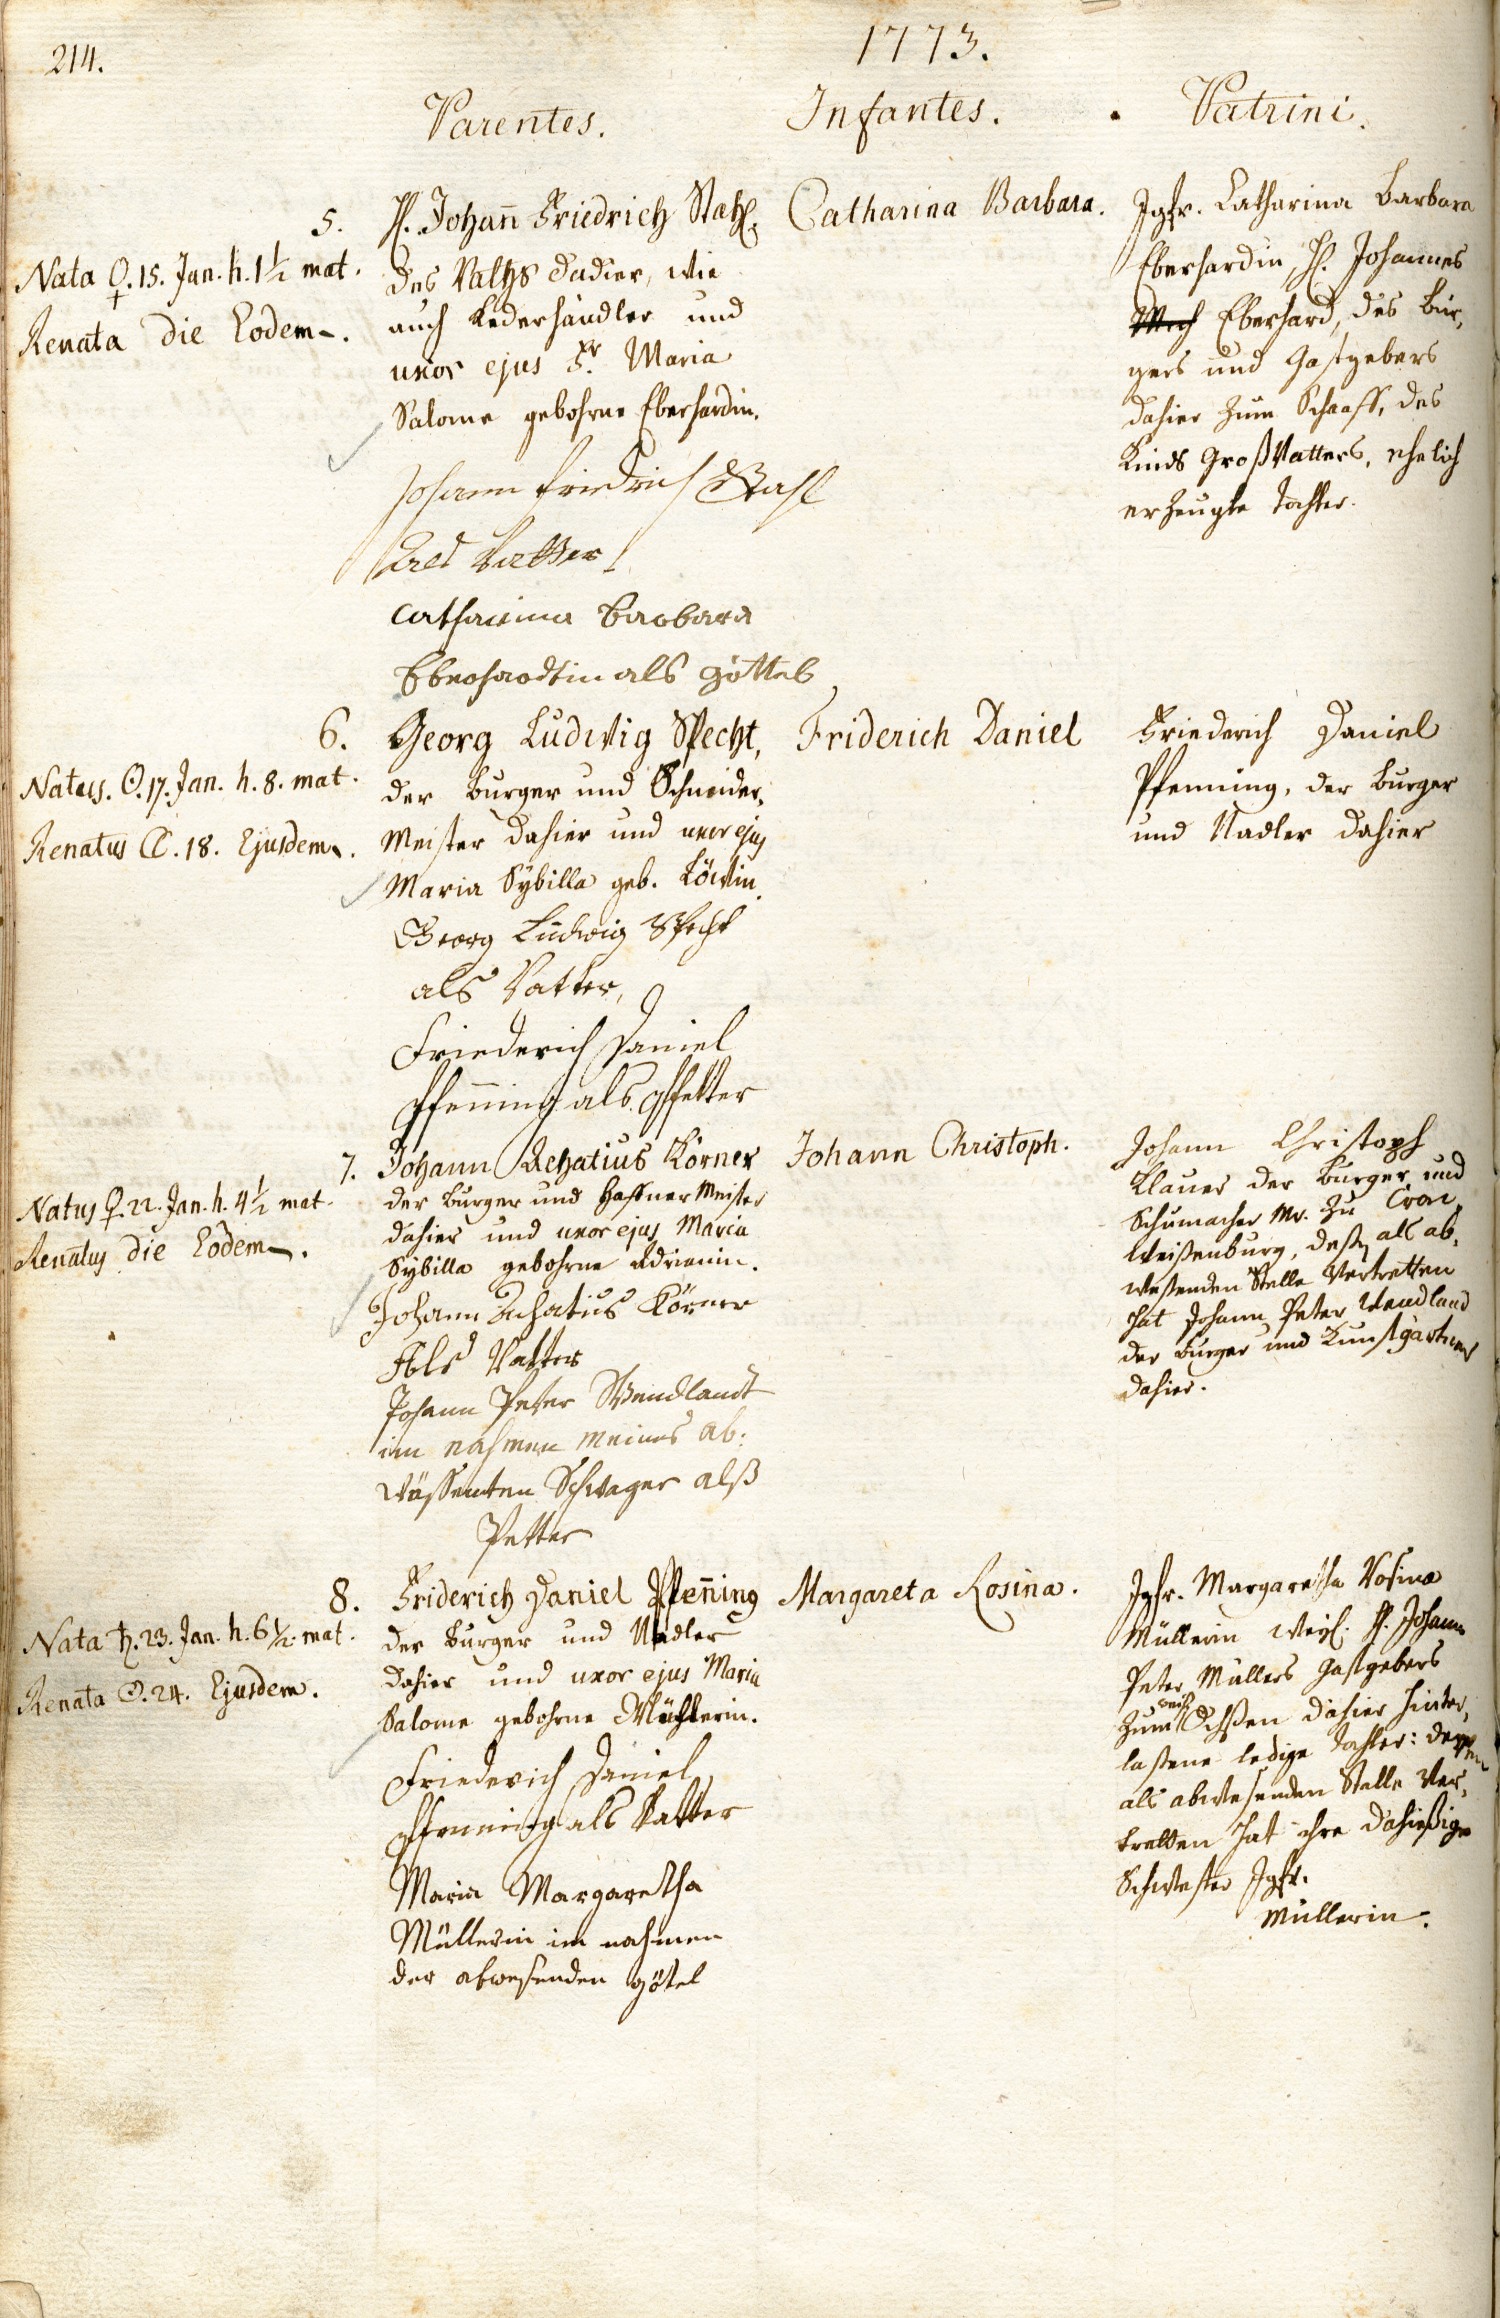 214.
1773.
Parentes.
Infantes.
Patrini.
5.
Nata ♀. 15. Jan. h. 1½ mat.
Renata die Eodem.
H. Johañ Friedrich Stahl,
des Raths dahier, wie
auch Lederhändler und
uxor ejus Fr. Maria
Salome gebohrne Eberhardin.
Johann friedrich Stahl
als Vatter
Catharina Barbara
Eberhardtin als göttel
Catharina Barbara.
Jgfr. Catharina Barbara
Eberhardin, H. Johannes
Eberhard, des Bur,
gers und Gastgebers
dahier zum Schaaff, des
Kinds Großvatters, ehelich
erzeugte Tochter.
6.
Natus. ☉. 17. Jan. h. 8. mat.
Renatus ☾. 18. Ejusdem.
Georg Ludwig Specht,
der Burger und Schneider,
Meister dahier und uxor ejus
Maria Sybilla geb. Löwin.
Georg Ludwig Specht
als Vatter,
Friederich Daniel
Pfeñing als Pfetter
Friderich Daniel
Friederich Daniel
Pfenning, der Burger
und Nadler dahier
7.
Natus ♀. 22. Jan. h. 4½ mat.
Renatus die Eodem.
Johann Achatius Körner
der Burger und Haffner Meister
dahier und uxor ejus Maria
Sybilla gebohrne Adrianin.
Johann Achatius Körner
Als Vatter
Johann Peter Wendlandt
im nahmen meines ab:
wässenten Schwager alß
Petter
Johann Christoph.
Johann Christoph
Clauer der Burger und
Schumacher Mr. zu Cron
Weißenburg, deßen als ab,
weßenden Stelle Vertretten
hat Johann Peter Wendland
der Burger und Kunstgärtner
dahier.
8.
Nata ♄. 23. Jan. h. 6½. mat.
Renata ☉. 24. Ejusdem.
Friderich Daniel Pfeñing
der Burger und Nadler
dahier und uxor ejus Maria
Salome gebohrne Müllerin.
Friederich Daniel
Pfenning als Vatter
Maria Margaretha
Müllerin im nahmen
der abwesenden götel
Margareta Rosina.
Jgfr. Margaretha Rosina
Müllerin weyl. H. Johann
Peter Müllers Gastgebers
zum Ochßen dahier hinter,
laßene ledige Tochter: deren
als abwesenden Stelle Ver,
tretten hat ihre dahießige
Schwester Jgfr.
Müllerin.